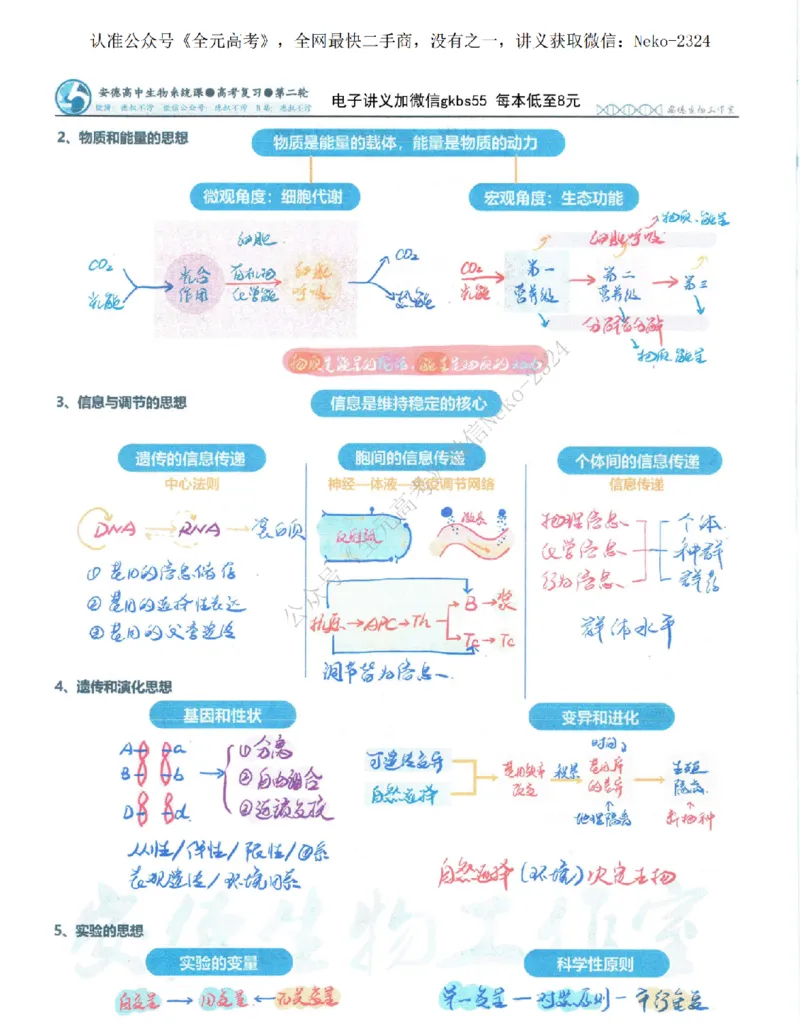 认准公众号《全元高考》，全网最快二手商，没有之一，讲义获取微信：Neko-2324
安德高中生物系统课●高考复习●第二轮
微博：德叔不浮 微信公众号：德叔不浮 B站：德叔不浮
电子讲义加微信gkbs55 每本低至8元
安德生物工作室
2、物质和能量的思想
物质是能量的载体，能量是物质的动力
微观角度：细胞代谢
宏观角度：生态功能
物质、能量
细胞
细胞呼吸
CO₂
光能
光合
作用
有机物
化学能
细胞
呼吸
CO₂
热能
CO₂
光能
第一
营养级
第二
营养级
第三
分解者分解
物质 能量
物质是能量的载体，能量是物质的动力
3、信息与调节的思想
信息是维持稳定的核心
遗传的信息传递
胞间的信息传递
个体间的信息传递
中心法则
神经—体液—免疫调节网络
信息传递
DNA
RNA
蛋白质
反射弧
激素
物理信息
化学信息
行为信息
个体
种群
群落
群体水平
① 基因的信息储存
② 基因的选择性表达
③ 基因的父传遗传
抗原→APC→Th
B→浆
Tc→Tc
调节皆为信息
公众号《全元高考》微信Neko-2324
4、遗传和演化思想
基因和性状
变异和进化
A a
B b
D d
①分离
②自由组合
③连锁互换
从性/伴性/限性/因系
表观遗传/环境因系
可遗传变异
自然选择
基因频率
改变
积累
时间
基因库
的差异
地理隔离
生殖
隔离
新物种
自然选择(环境)决定生物
安德生物工作室
5、实验的思想
实验的变量
科学性原则
自变量→因变量←无关变量
单一变量—对照原则—平行重复